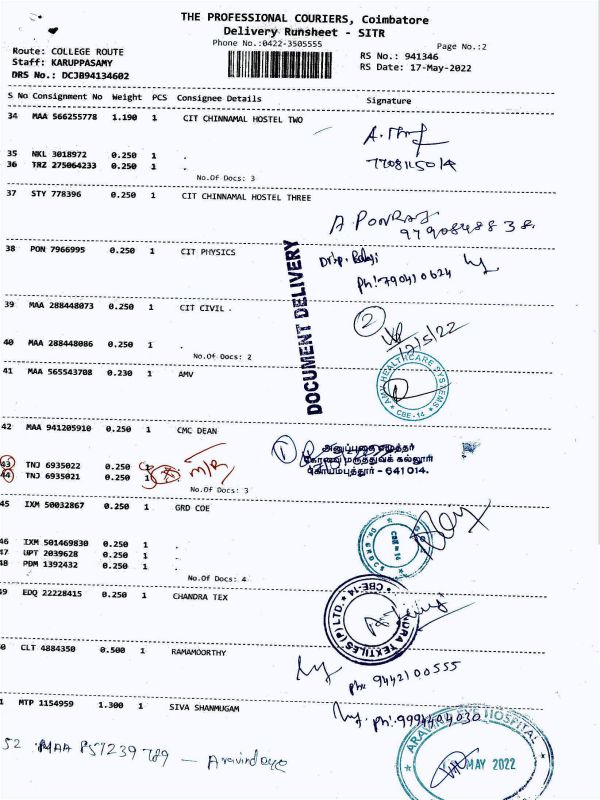 THE PROFESSIONAL COURIERS, Coimbatore
Delivery Runsheet - SITR
Phone No.:0422-3505555
Page No.:2
Route: COLLEGE ROUTE
RS No.: 941346
Staff: KARUPPASAMY
RS Date: 17-May-2022
DRS No.: DCJB94134602
S No Consignment No Weight PCS Consignee Details Signature
34 MAA 566255778 1.190 1 CIT CHINNAMAL HOSTEL TWO
35 NKL 3018972 0.250 1 .
36 TRZ 275064233 0.250 1 .
No.Of Docs: 3
37 STY 778396 0.250 1 CIT CHINNAMAL HOSTEL THREE
A PONRAJ
9790848838
38 PON 7966995 0.250 1 CIT PHYSICS
Ph: 790410624
DOCUMENT DELIVERY
39 MAA 288448073 0.250 1 CIT CIVIL .
2
40 MAA 288448086 0.250 1 .
No.Of Docs: 2
41 MAA 565543708 0.230 1 AMV
AMV HEALTHCARE SYSTEMS
CBE-14
42 MAA 941205910 0.250 1 CMC DEAN
1
அனுப்புகை எழுத்தர்
கோவை மருத்துவக் கல்லூரி
கோயம்புத்தூர் - 641 014.
43 TNJ 6935022 0.250
44 TNJ 6935021 0.250 1
M/R
No.Of Docs: 3
45 IXM 50032867 0.250 1 GRD COE
46 IXM 501469830 0.250 1 .
47 UPT 2039628 0.250 1 .
48 PDM 1392432 0.250 1 .
No.Of Docs: 4
49 EDQ 22228415 0.250 1 CHANDRA TEX
CHANDRA TEXTILES (P) LTD.
CBE-14
50 CLT 4884350 0.500 1 RAMAMOORTHY
ph: 9442100555
51 MTP 1154959 1.300 1 SIVA SHANMUGAM
ph: 9994404030
52 MAA 857239789 - Aravind eye
ARAVIND EYE HOSPITAL
MAY 2022